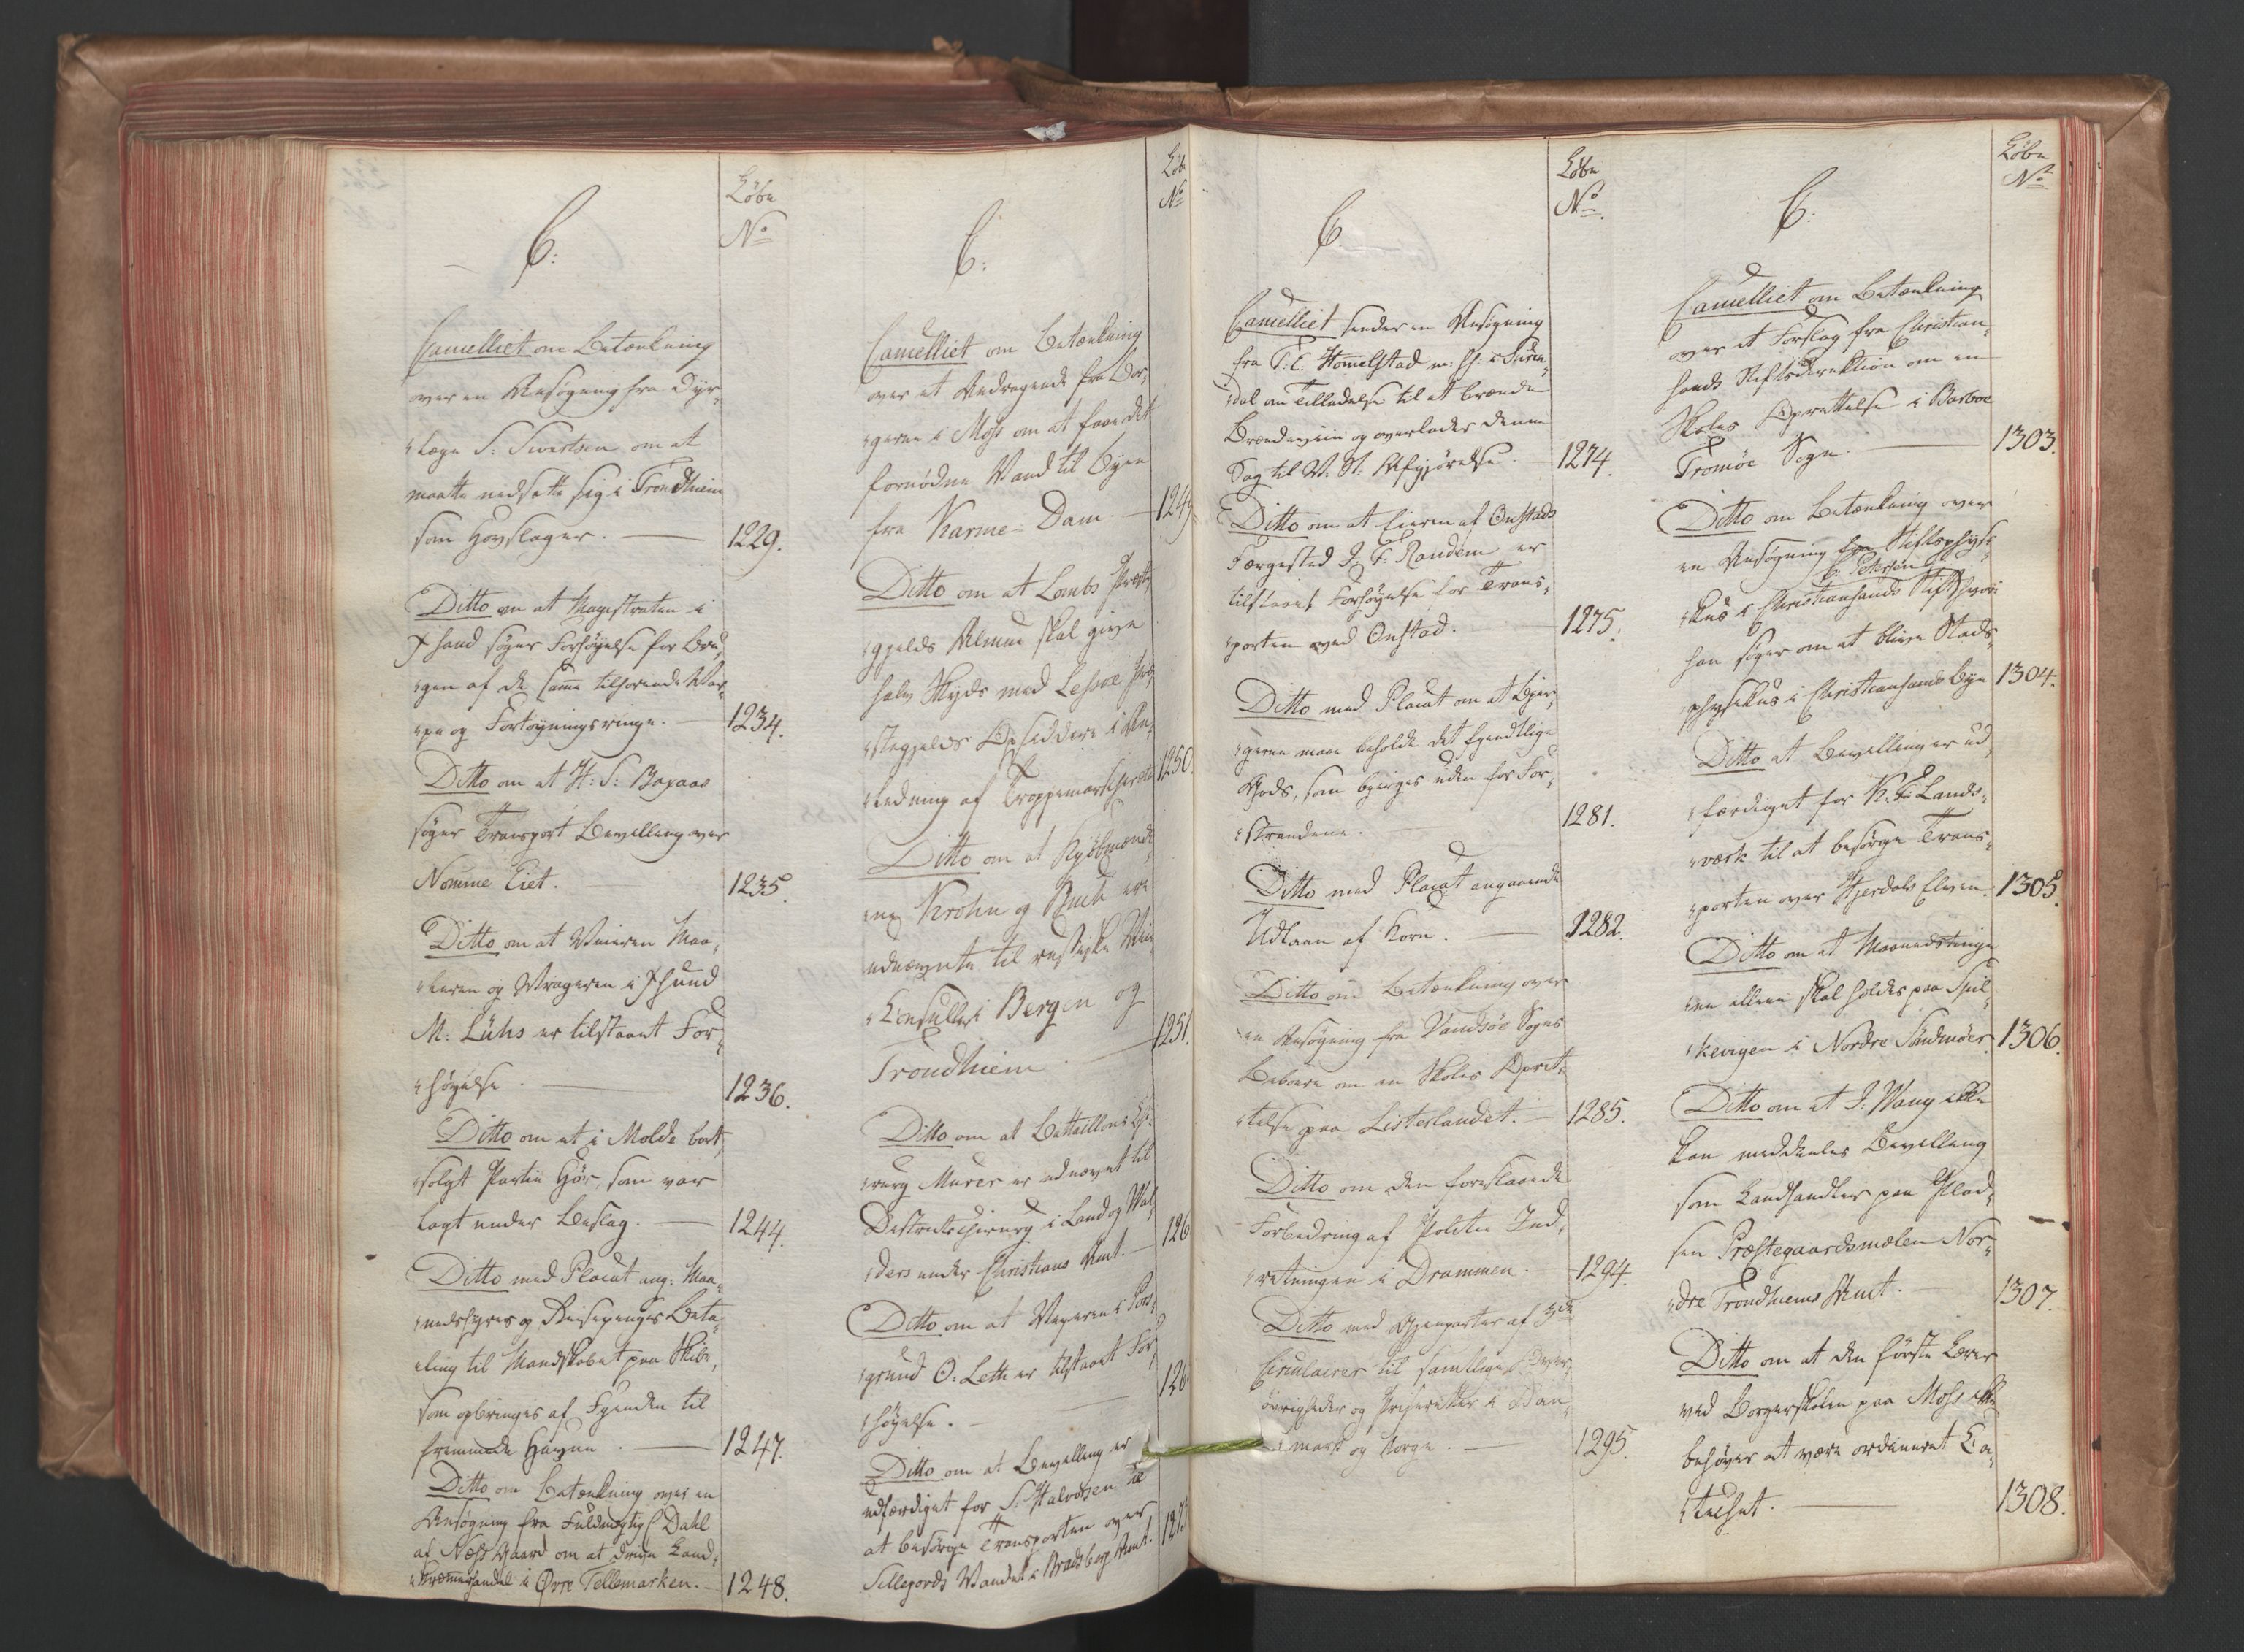 C:
Løbe
No
Cancelliet om Betænkning
over en Ansøgning fra Dyr-
læge S: Sivertsen om at
maatte nedsætte sig i Trondhiem
som Hovslager. — 1229.
Ditto om at Magistraten i
Xsand søger Forhøyelse for Bru-
gen af de samme tilhørende War-
pe og Fortøyningsringe. — 1234.
Ditto om at H: S:
søger Transport Bevilling over
Nomme Eiet. 1235.
Ditto om at Veieren Maa-
leren og Vrageren i Xsund
M: Lühs er tilstaaet For-
høyelse. — 1236.
Ditto om et i Molde bort-
solgt Partie Hør, som var
lagt under Beslag. — 1244.
Ditto med Placat ang: Maa-
nedshyres og Reisepenges Beta-
ling til Mandskabet paa Skibe,
som opbringes af Fienden til
fremmede Havne. — 1247.
Ditto om Betænkning over en
Ansøgning fra Fuldmægtig Dahl
af Næss Gaard om at drive Land-
kræmmerhandel i Øvre Tellemarken. — 1248.
C:
Løbe
No
Cancelliet om Betænkning
over et Andragende fra Bor-
gerne i Moss om at faae det
fornødne Vand til Byen
fra Karme-Dam. — 1249
Ditto om at Lombs Præste-
gjelds Almue skal give
halv Skyds med Lessøe Præ-
stegjelds Opsiddere i An-
ledning af Troppemarscherete 1250.
Ditto om at Kjøbmænde-
ne Krohn og Buch ere
udnævnte til russiske Vice
Consuller i Bergen og
Trondhiem. — 1251.
Ditto om at Battaillons Chi-
rurg Murer er udnævnt til
Destrictschirurg i Land og Wal-
ders under Christians Amt. — 126
Ditto om at Vejeren i Pors-
grund O: Leth er tilstaaet For-
høyelse. — 126
Ditto om at Bevilling er
udfærdiget for S: Halvorsen til
at besørge Transporten over
Sillejords Vandet i Bradsberg Amt. 127
C
Løbe
No.
Cancelliet sender en Ansøgning
fra T: E: Homelstad m: fl: i Suren-
dal om Tilladelse til at brænde
Brændeviin og overlader denne
Sag til V: St: Afgjørelse. — 1274.
Ditto om at Eieren af Onstads
Færgested J: T: Randem er
tilstaaet Forhøyelse for Trans-
porten ved Onstad. 1275.
Ditto med Placat om at Bjer-
gerne maae beholde det fiendtlige
Gods, som bjerges uden for For-
strandene. 1281.
Ditto med Placat angaaende
Udlaan af Korn. — 1282.
Ditto om Betænkning over
en Ansøgning fra Vandsøe Sogns
Beboere om en Skoles Opret-
telse paa Listerlandet. — 1285.
Ditto om den foreslaaede
Forbedring af Politie Ind-
retningen i Drammen. — 1294.
Ditto med Gjenparter af 3de
Circulairer til samtlige Over-
øvrigheder og Priseretter i Dan-
mark og Norge. — 1295.
C:
Løbe
No
Cancelliet om Betænkning
over et Forslag fra Christian-
sands Stiftsdirektion om en
Skoles Oprettelse i Barboe
Tromøe Sogn. — 1303.
Ditto om Betænkning over
en Ansøgning fra Stiftsphysi-
C: Petersen
kus i Christiansands Stift hvori
han søger om at blive Stads-
physikus i Christiansands Bye 1304.
Ditto at Bevilling er ud-
færdiget for K: E: Lands-
værk til at besørge Trans-
porten over Hjerdals Elven. 1305.
Ditto om at Maanedstinge-
ne allene skal holdes paa Spil-
kevigen i Nordre Søndmøer. 1306.
Ditto om at J: Wang ikke
kan meddeeles Bevilling
som Landhandler paa Plad-
sen Præstegaardsmælen Nor-
dre Trondhiems Amt. — 1307.
Ditto om at den første Lærer
ved Borgerskolen paa Moss ikke
behøver at være ordineret Ca-
techet. — 1308.